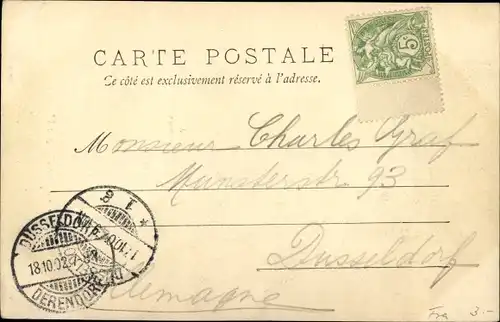 CARTE POSTALE
Ce côté est exclusivement réservé à l'adresse.
5
Monsieur Charles Graf
Münsterstr 93
Dusseldorf
Allemagne
DÜSSELDORF
18.10.02.
DERENDORF
Fra 3.-